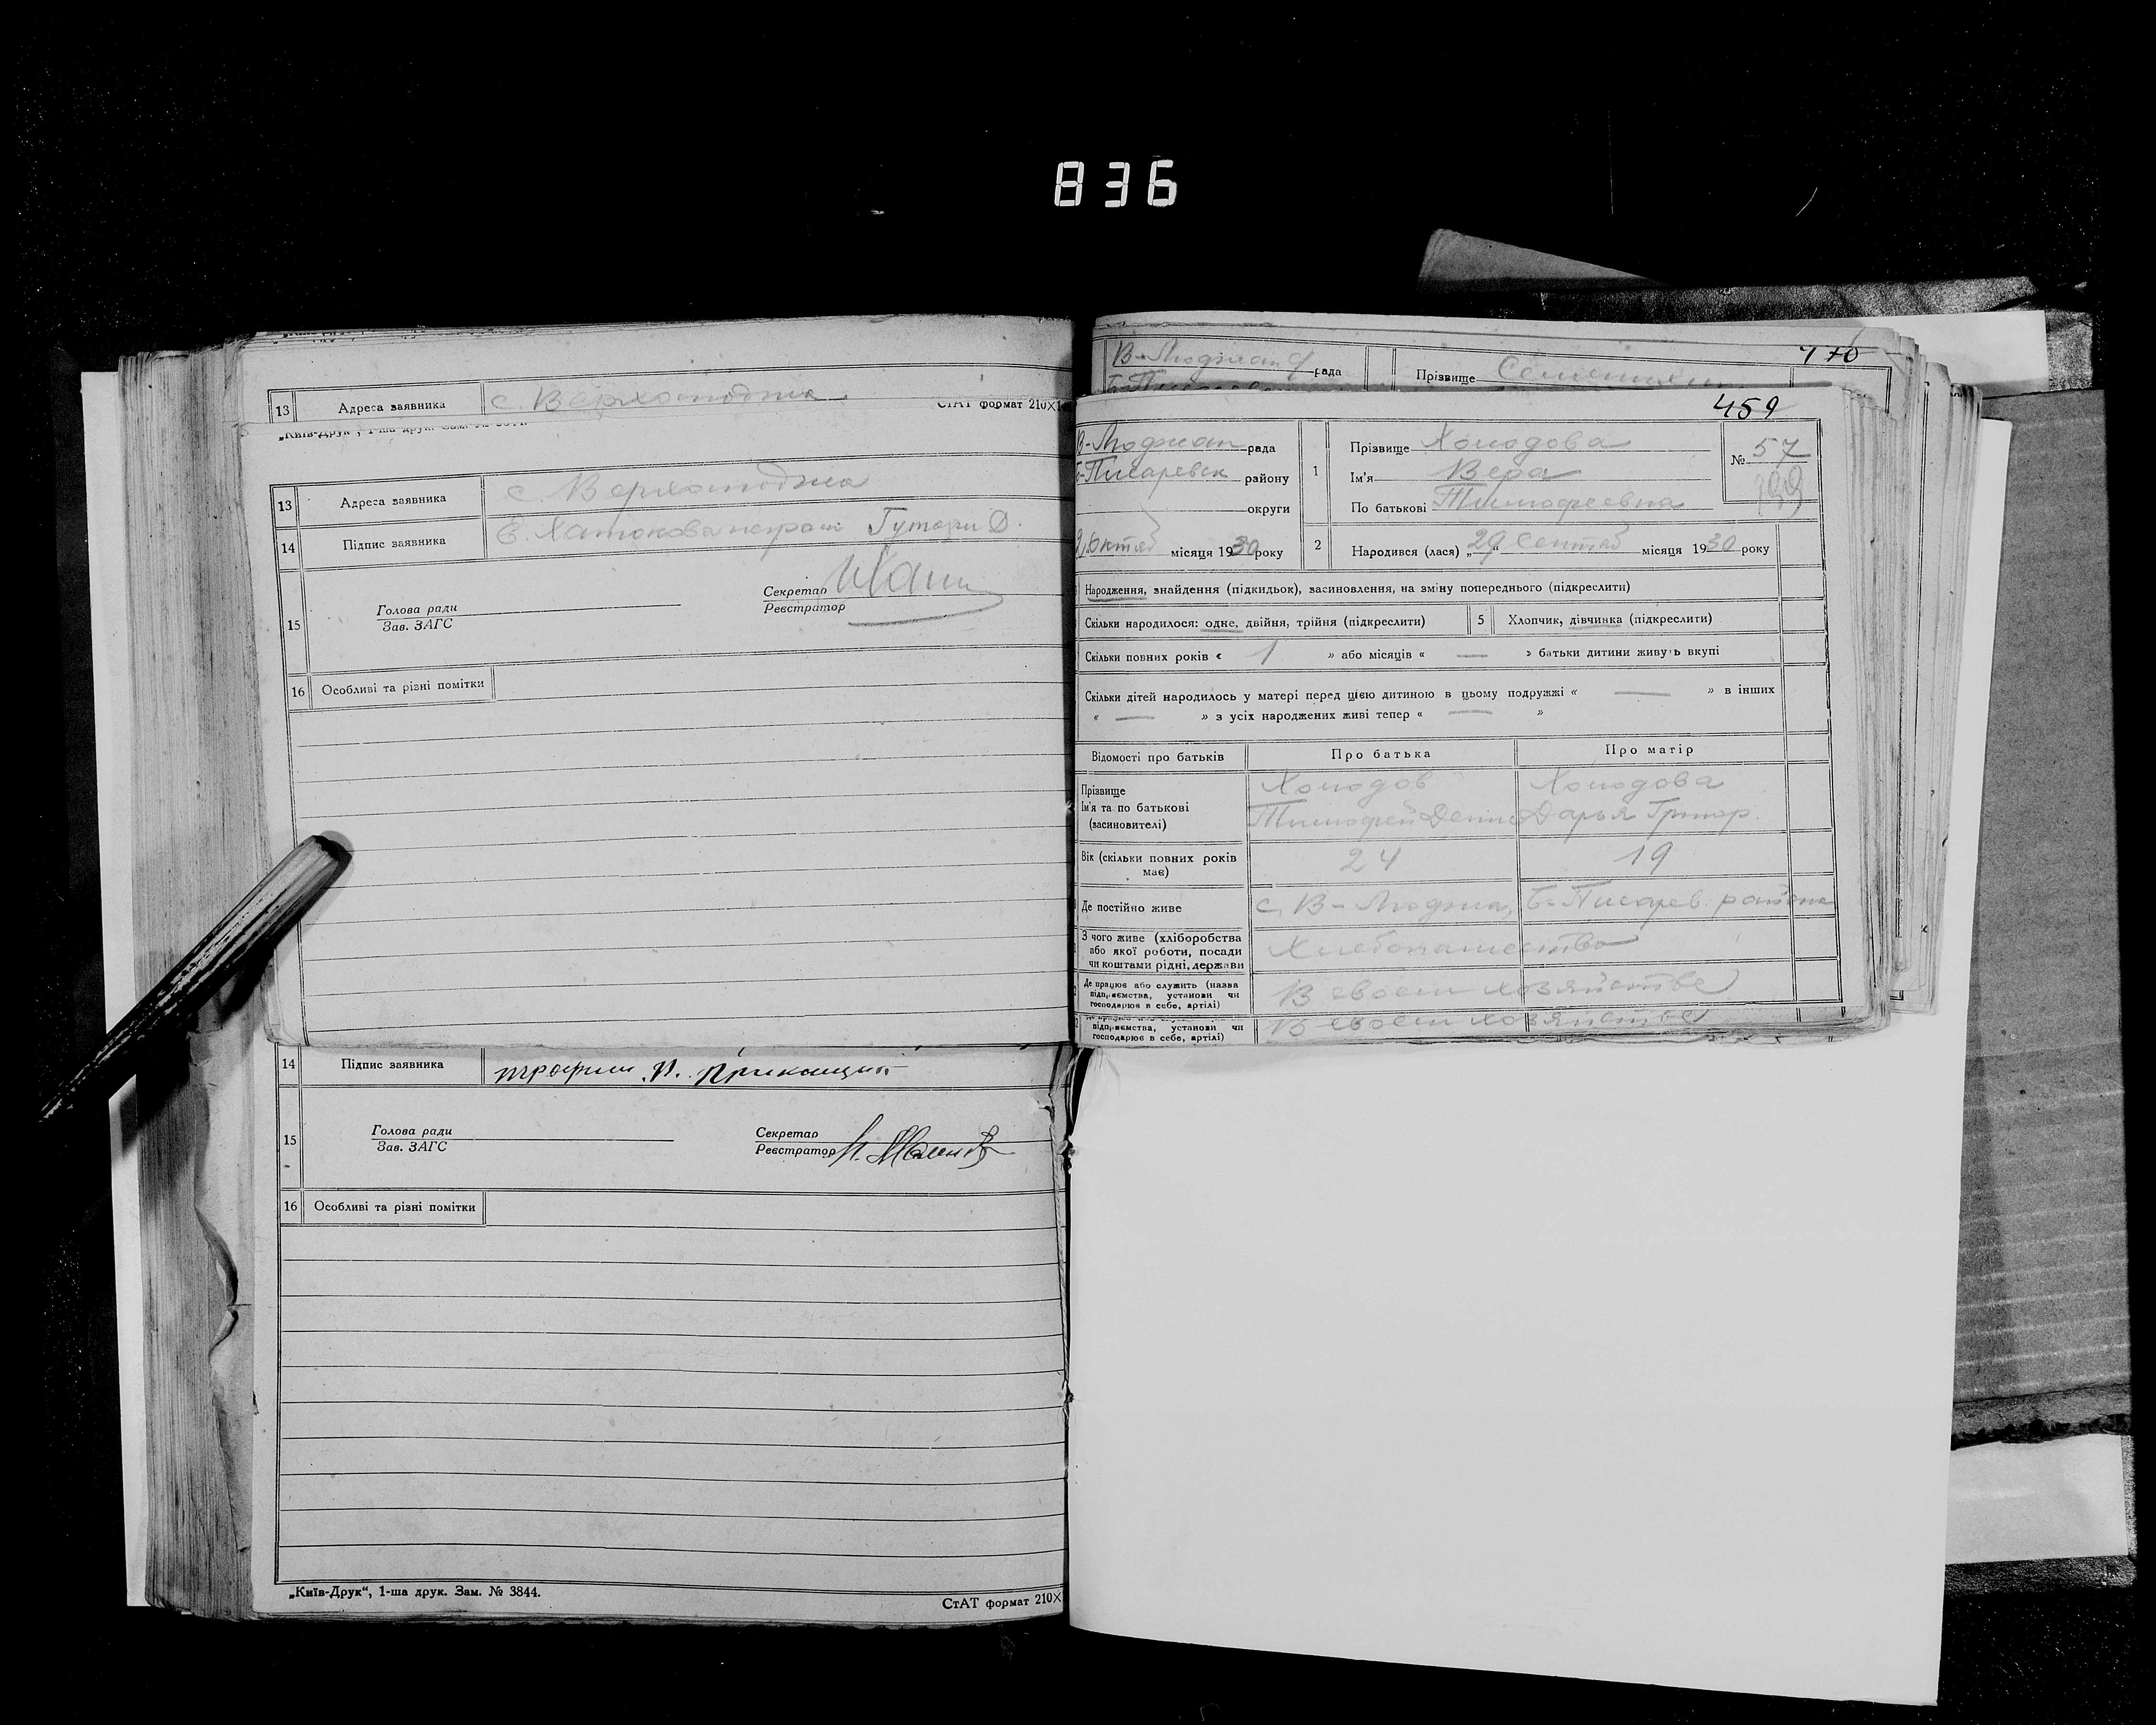 836
13 Адреса заявника с. Верхолюджа
СтАТ формат 210×1
„Київ-Друк“, 1-ша друк.
13 Адреса заявника с. Верхолюджа
14 Підпис заявника
15 Голова ради
Зав. ЗАГС
Секретар
Реєстратор
16 Особливі та різні помітки
14 Підпис заявника
15 Голова ради
Зав. ЗАГС
Секретар
Реєстратор
16 Особливі та різні помітки
„Київ-Друк“, 1-ша друк. Зам. № 3844.
СтАТ формат 210×
470
рада Прізвище
459
рада
Б-Писаревск району
округи
місяця 1930 року
1 Прізвище Холодова
Ім'я Вера
По батькові Тимофеевна
№ 57
2 Народився (лася) „29“ Сентяб місяця 1930 року
Народження, знайдення (підкидьок), засиновлення, на зміну попереднього (підкреслити)
Скільки народилося: одне, двійня, трійня (підкреслити) 5 Хлопчик, дівчинка (підкреслити)
Скільки повних років « 1 » або місяців « — » батьки дитини живуть вкупі
Скільки дітей народилось у матері перед цією дитиною в цьому подружжі « — » в інших
« — » з усіх народжених живі тепер « — »
Відомості про батьків Про батька Про матір
Прізвище Холодов Холодова
Ім'я та по батькові Тимофей Денис Дарья Григор.
(засиновителі)
Вік (скільки повних років має) 24 19
Де постійно живе с. В-Люджа, Б-Писарев. района
З чого живе (хліборобства
або якої роботи, посади
чи коштами рідні, держави Хлебопашество
Де працює або служить (назва
підприємства, установи чи
господарює в себе, артілі) В своем хозяйстве
підприємства, установи чи
господарює в себе, артілі) В своем хозяйстве